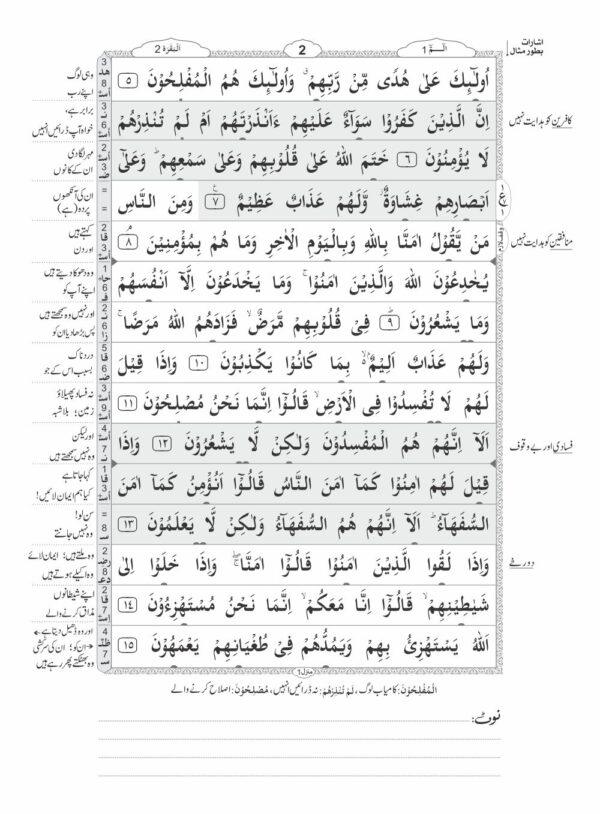 اشارات بطور مثال
البقرة 2
2
الٓمّٓ 1
اُولٰٓئِكَ عَلٰى هُدًى مِّنْ رَّبِّهِمْ ۙ وَاُولٰٓئِكَ هُمُ الْمُفْلِحُوْنَ ﴿۵﴾
اِنَّ الَّذِيْنَ كَفَرُوْا سَوَآءٌ عَلَيْهِمْ ءَاَنْذَرْتَهُمْ اَمْ لَمْ تُنْذِرْهُمْ
لَا يُؤْمِنُوْنَ ﴿۶﴾ خَتَمَ اللهُ عَلٰى قُلُوْبِهِمْ وَعَلٰى سَمْعِهِمْ ؕ وَعَلٰٓى
اَبْصَارِهِمْ غِشَاوَةٌ ۫ وَّلَهُمْ عَذَابٌ عَظِيْمٌ ﴿۷﴾ وَمِنَ النَّاسِ
مَنْ يَّقُوْلُ اٰمَنَّا بِاللهِ وَبِالْيَوْمِ الْاٰخِرِ وَمَا هُمْ بِمُؤْمِنِيْنَ ﴿۸﴾
يُخٰدِعُوْنَ اللهَ وَالَّذِيْنَ اٰمَنُوْا ۚ وَمَا يَخْدَعُوْنَ اِلَّآ اَنْفُسَهُمْ
وَمَا يَشْعُرُوْنَ ﴿۹﴾ فِيْ قُلُوْبِهِمْ مَّرَضٌ ۙ فَزَادَهُمُ اللهُ مَرَضًا ۚ
وَلَهُمْ عَذَابٌ اَلِيْمٌ ۢ ۙ بِمَا كَانُوْا يَكْذِبُوْنَ ﴿۱۰﴾ وَاِذَا قِيْلَ
لَهُمْ لَا تُفْسِدُوْا فِي الْاَرْضِ ۙ قَالُوْٓا اِنَّمَا نَحْنُ مُصْلِحُوْنَ ﴿۱۱﴾
اَلَآ اِنَّهُمْ هُمُ الْمُفْسِدُوْنَ وَلٰكِنْ لَّا يَشْعُرُوْنَ ﴿۱۲﴾ وَاِذَا
قِيْلَ لَهُمْ اٰمِنُوْا كَمَآ اٰمَنَ النَّاسُ قَالُوْٓا اَنُؤْمِنُ كَمَآ اٰمَنَ
السُّفَهَآءُ ؕ اَلَآ اِنَّهُمْ هُمُ السُّفَهَآءُ وَلٰكِنْ لَّا يَعْلَمُوْنَ ﴿۱۳﴾
وَاِذَا لَقُوا الَّذِيْنَ اٰمَنُوْا قَالُوْٓا اٰمَنَّا ۖۚ وَاِذَا خَلَوْا اِلٰى
شَيٰطِيْنِهِمْ ۙ قَالُوْٓا اِنَّا مَعَكُمْ ۙ اِنَّمَا نَحْنُ مُسْتَهْزِءُوْنَ ﴿۱۴﴾
اَللهُ يَسْتَهْزِئُ بِهِمْ وَيَمُدُّهُمْ فِيْ طُغْيَانِهِمْ يَعْمَهُوْنَ ﴿۱۵﴾
منزل ۱
کافرین کو ہدایت نہیں
منافقین کو ہدایت نہیں
فسادی اور بے وقوف
دورخے
وہی لوگ
اپنے رب
برابر ہے،
خواہ آپ ڈرائیں انہیں
مہر لگادی
ان کے کانوں
ان کی آنکھوں
پردہ (ہے)
کہتے ہیں
اور دن
وہ دھوکا دیتے ہیں
اپنے آپ کو
اور نہیں وہ سمجھتے ہیں
پس بڑھادیا ان کو
دردناک
بسبب اس کے جو
نہ فساد پھیلاؤ
زمین؛ بلاشبہ
اور لیکن
وہ نہیں سمجھتے ہیں
کہا جاتا ہے
کیا ہم ایمان لائیں!
سن لو!
وہ نہیں جانتے
وہ ملتے ہیں؛ ایمان لائے
وہ اکیلے ہوتے ہیں
اپنے شیطانوں
مذاق کرنے والے
اور وہ ڈھیل دیتا ہے
ان کو؛ ان کی سرکشی
وہ بھٹکتے پھر رہے ہیں
الْمُفْلِحُوْنَ: کامیاب لوگ، لَمْ تُنْذِرْهُمْ: نہ ڈرائیں انہیں، مُصْلِحُوْنَ: اصلاح کرنے والے
نوٹ: